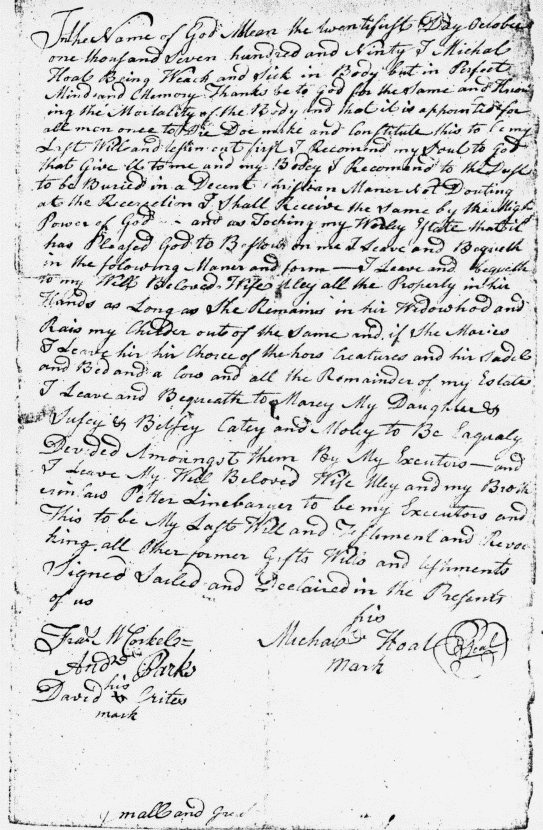 In the Name of God Amean the twentifirst Day October
one thousand Seven hundred and Ninty I Michal
Hoal Being Weack and Sick in Body but in Perfect
Mind and Memory Thanks be to God for the same and Know
ing the Mortality of the Body and that it is appointed for
all men once to Die Doe make and Constitute this to be my
Last Will and first I Recomend my Soul to God
that Give it to me and my Bodey I Recomend to the Dust
to be Buried in a Decent Christian Maner Not Douting
at the Recerection I Shall Receive the same by the Migh
Power of God - and as Toching my Worley Estate that it
has Pleased God to Bestow on me I Leave and Bequeth
in the folowing Maner and form — I Leave and Bequeth
to my Well Beloved Wife Uley all the Property in hir
Hands as Long as She Remains in hir Widowhod and
Rais my Childer out of the Same and if She Maries
I Leave hir hir Choice of the hors Creatures and hir Sadel
and Bed and a Cow and all the Remainder of my Estate
I Leave and Bequeath to Marey My Daughter &
Susey & Betsey Catey and Moley to Be Eaqualy
Devided Amoungst them By My Executors — and
I Leave My Well Beloved Wife Uley and my Broth
erinlaw Petter Linebarger to be my Executors and
This to be My Last Will and Testument and Revoc
king all Other former Gifts Wills and testiments
Signed Sailed and Declaired in the Presents
of us
his
Michal Hoal Seal
mark
Andw Parks
his
David Crites
mark
mall and